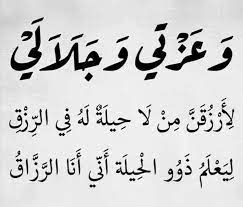 وَعَزْتِي وَجَلَالَيْ
لِأَرْزُقَنَّ مِنْ لَا حِيلَةَ لَهُ فِي الرِّزْقِ
لِيَعْلَمُ ذَوُو الْحِيلَة أَنِّي أَنَا الرَّزَّاقُ